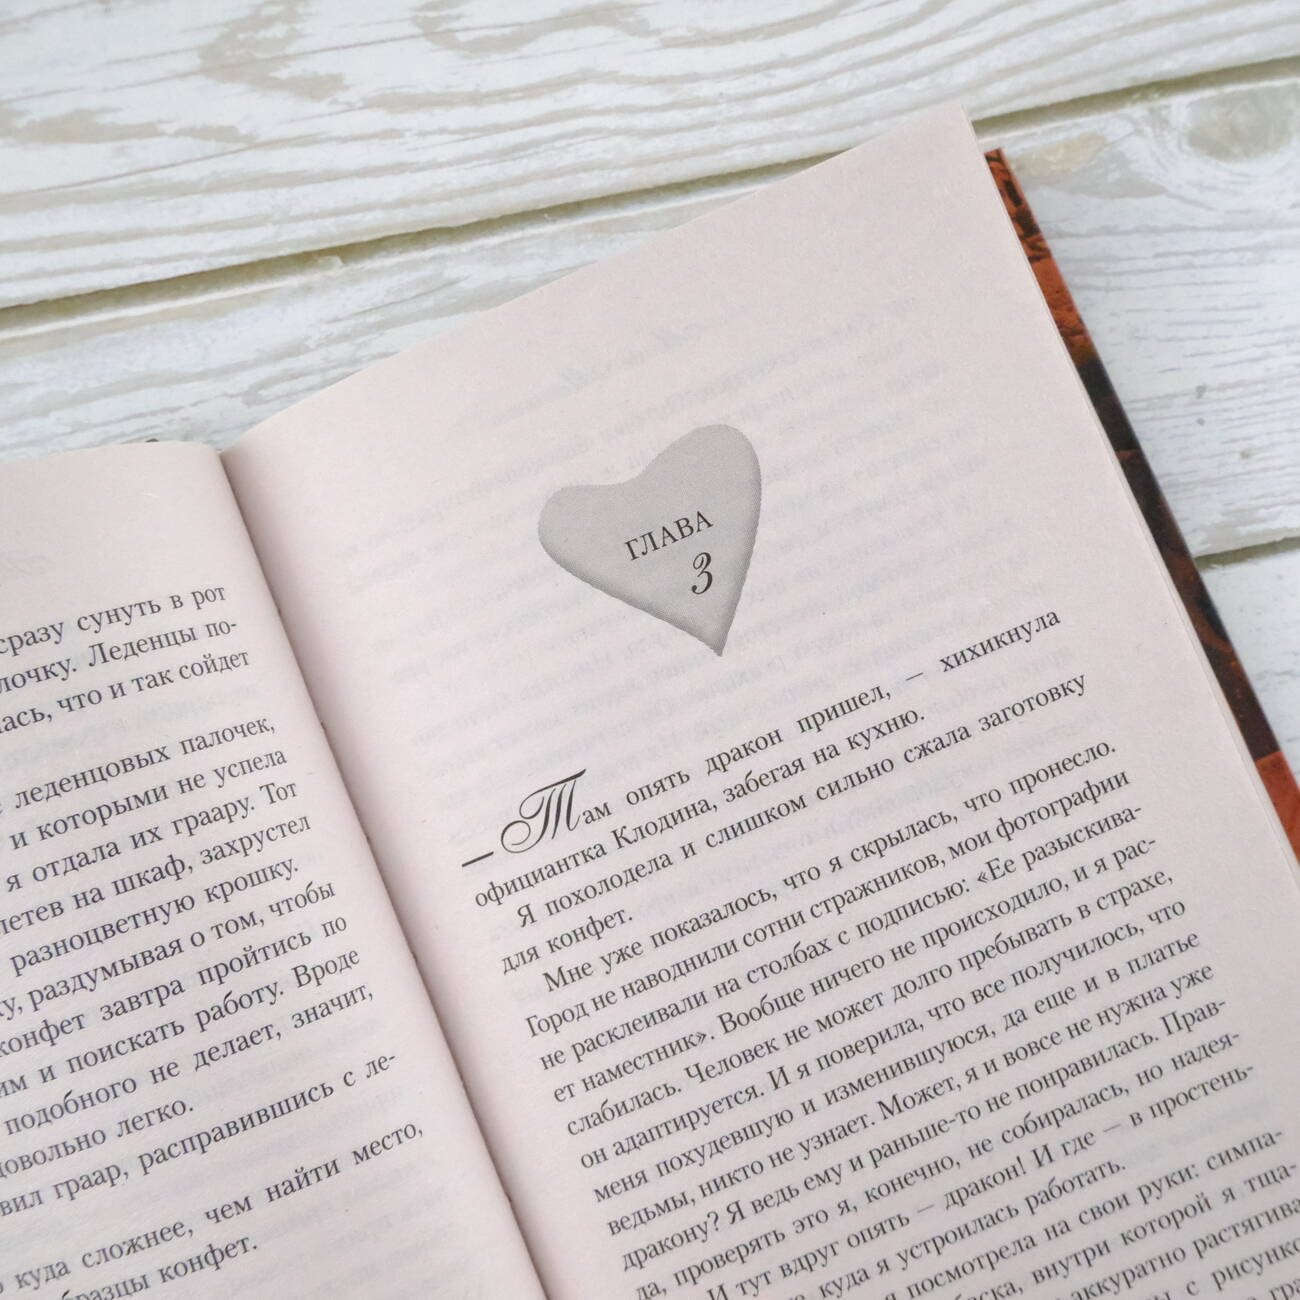 сразу сунуть в рот
лочку. Леденцы по-
лась, что и так сойдет
леденцовых палочек,
и которыми не успела
я отдала их граару. Тот
летев на шкаф, захрустел
разноцветную крошку.
раздумывая о том, чтобы
конфет завтра пройтись по
им и поискать работу. Вроде
подобного не делает, значит,
довольно легко.
вил граар, расправившись с ле-
куда сложнее, чем найти место,
бразцы конфет.
ГЛАВА
3
— Там опять дракон пришел, — хихикнула
официантка Клодина, забегая на кухню.
Я похолодела и слишком сильно сжала заготовку
для конфет.
Мне уже показалось, что я скрылась, что пронесло.
Город не наводнили сотни стражников, мои фотографии
не расклеивали на столбах с подписью: «Ее разыскива-
ет наместник». Вообще ничего не происходило, и я рас-
слабилась. Человек не может долго пребывать в страхе,
он адаптируется. И я поверила, что все получилось, что
меня похудевшую и изменившуюся, да еще и в платье
ведьмы, никто не узнает. Может, я и вовсе не нужна уже
дракону? Я ведь ему и раньше-то не понравилась. Прав-
да, проверять это я, конечно, не собиралась, но надея-
И тут вдруг опять — дракон! И где — в простень-
куда я устроилась работать.
посмотрела на свои руки: симпа-
внутри которой я тща-
аккуратно растягива
с рисунко